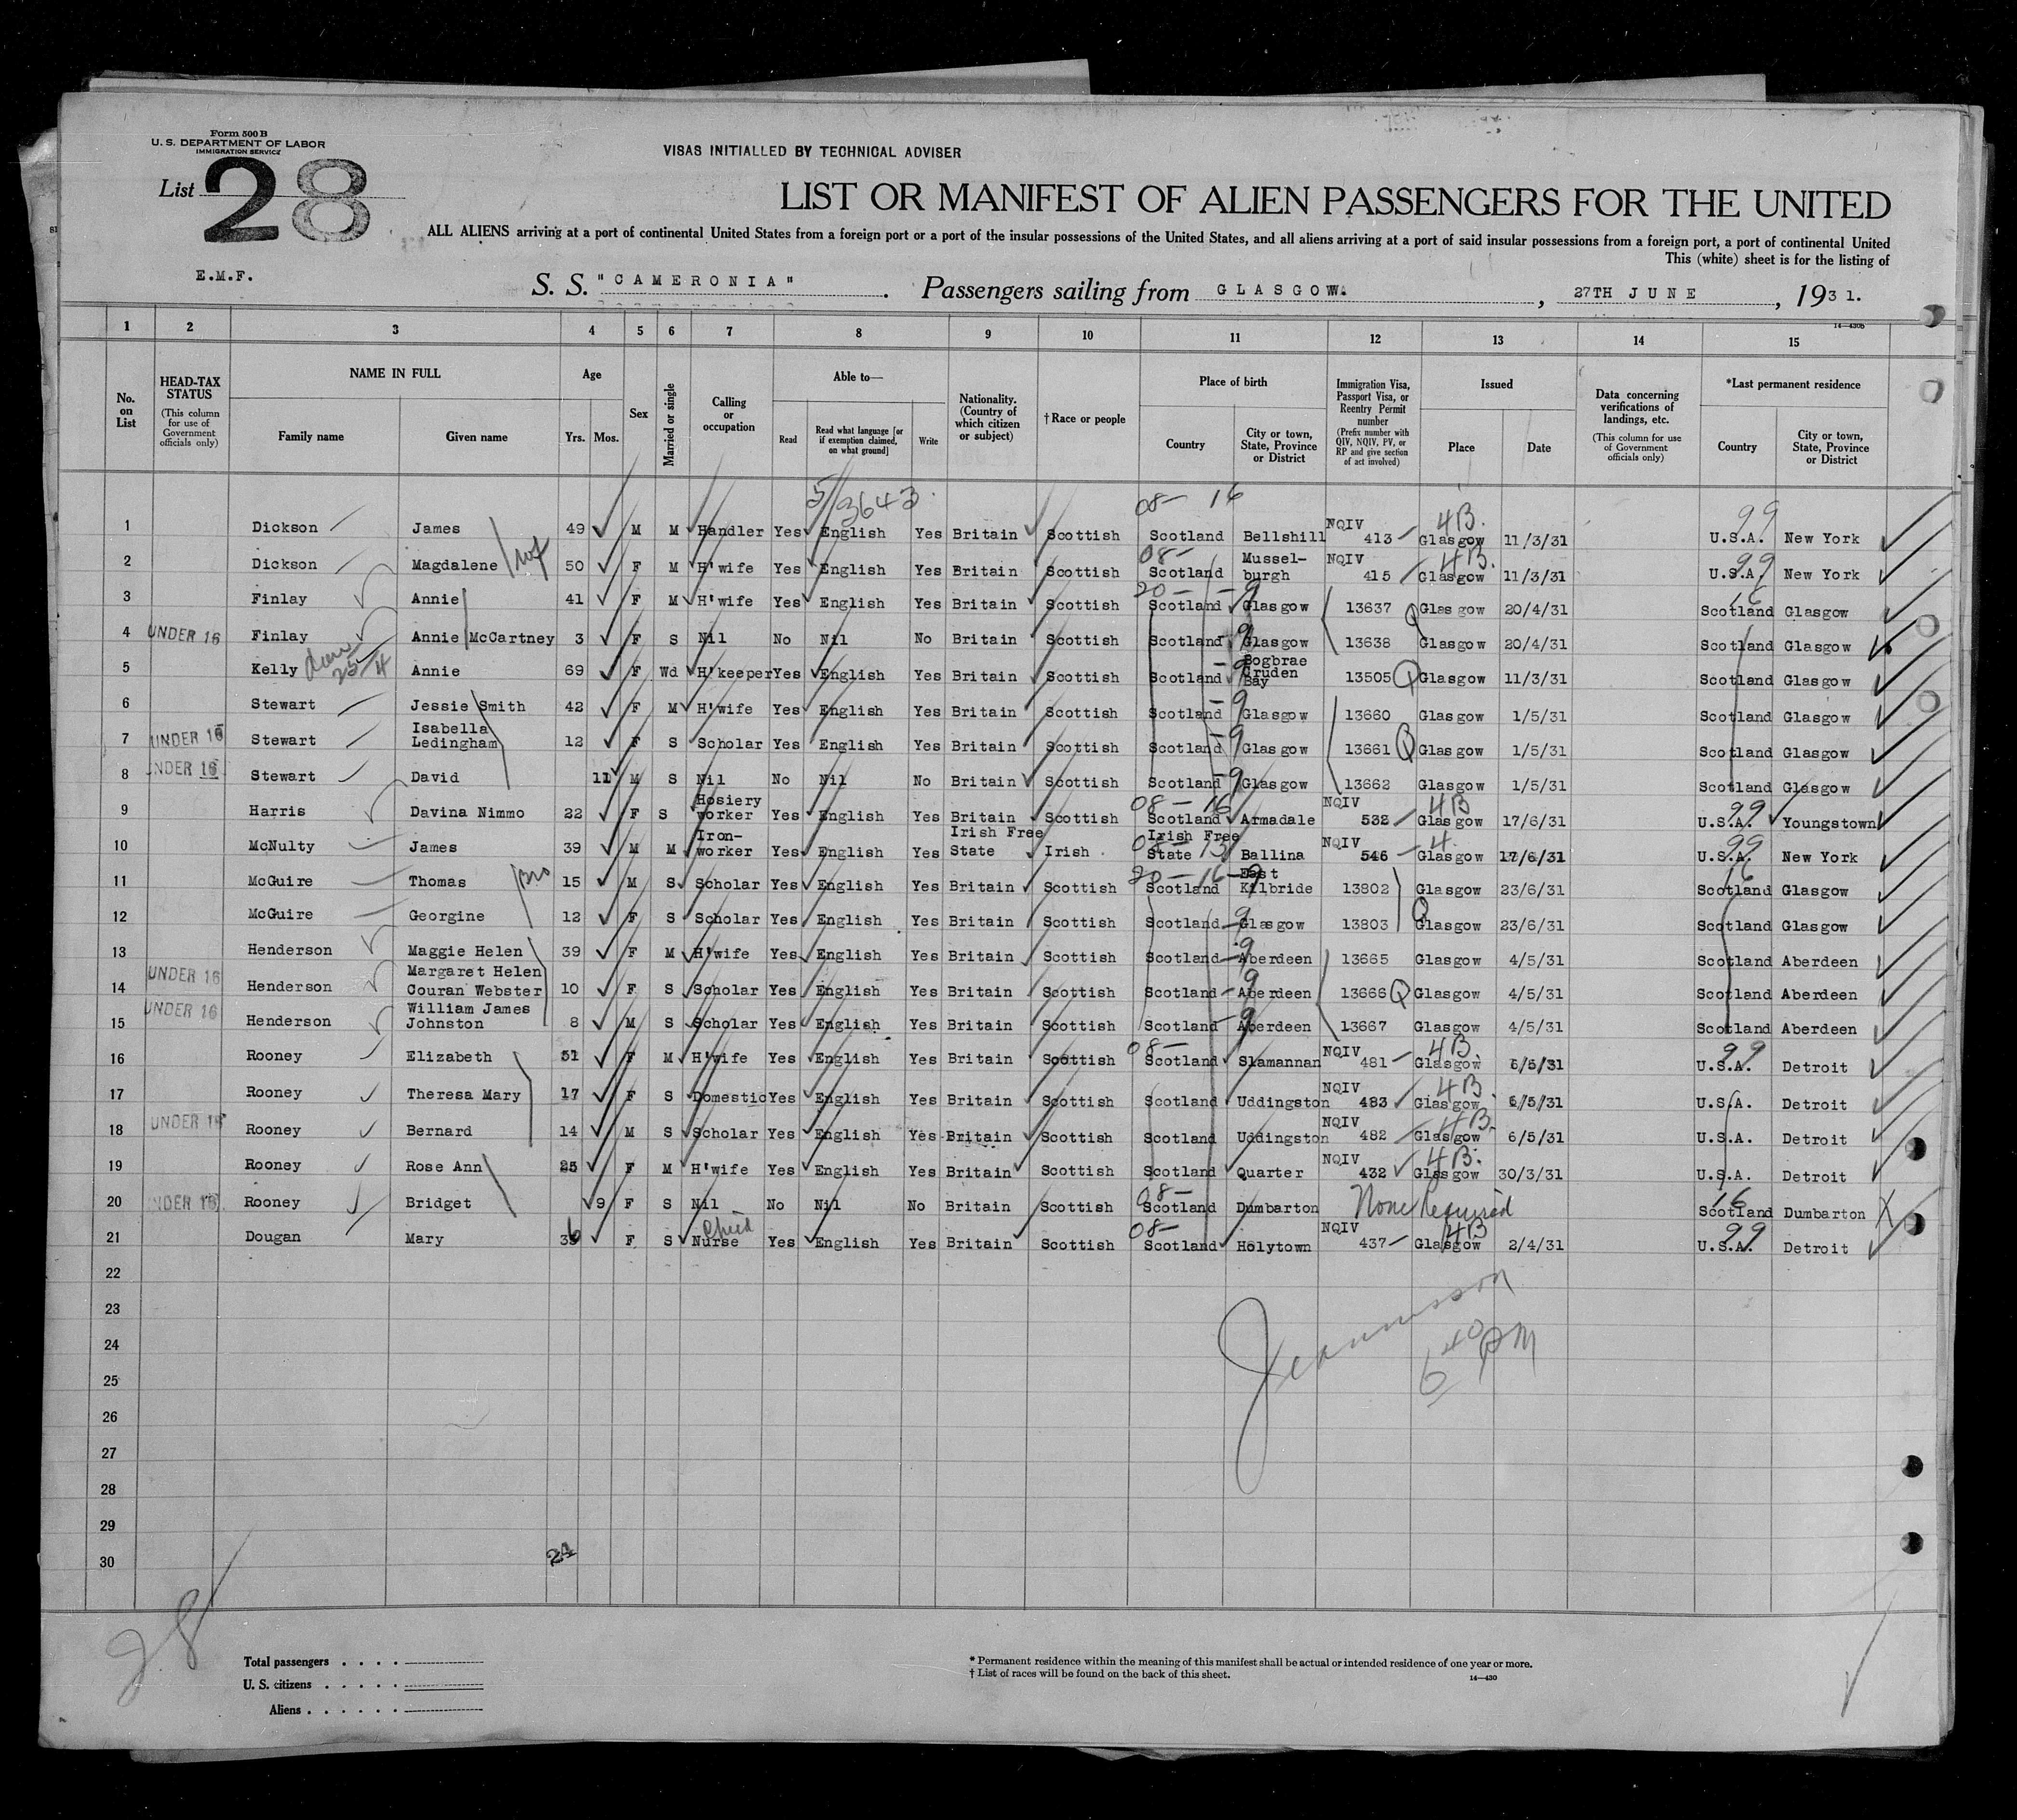 Form 500 B
U. S. DEPARTMENT OF LABOR
IMMIGRATION SERVICE
List 28
VISAS INITIALLED BY TECHNICAL ADVISER
LIST OR MANIFEST OF ALIEN PASSENGERS FOR THE UNITED
ALL ALIENS arriving at a port of continental United States from a foreign port or a port of the insular possessions of the United States, and all aliens arriving at a port of said insular possessions from a foreign port, a port of continental United
This (white) sheet is for the listing of
E.M.F.
S. S. "CAMERONIA". Passengers sailing from GLASGOW. , 27TH JUNE , 1931.
14—430b
1 2 3 4 5 6 7 8 9 10 11 12 13 14 15
No. on List
HEAD-TAX STATUS (This column for use of Government officials only)
NAME IN FULL Family name Given name
Age Yrs. Mos.
Sex
Married or single
Calling or occupation
Able to— Read Read what language [or if exemption claimed, on what ground] Write
Nationality. (Country of which citizen or subject)
† Race or people
Place of birth Country City or town, State, Province or District
Immigration Visa, Passport Visa, or Reentry Permit number (Prefix number with QIV, NQIV, PV, or RP and give section of act involved)
Issued Place Date
Data concerning verifications of landings, etc. (This column for use of Government officials only)
*Last permanent residence Country City or town, State, Province or District
5/3643 08— 16
1 Dickson James 49 M M Handler Yes English Yes Britain Scottish Scotland Bellshill NQIV 413 4B. Glasgow 11/3/31 99 U.S.A. New York
2 Dickson Magdalene wf 50 F M H'wife Yes English Yes Britain Scottish 08— Scotland Mussel-burgh NQIV 415 4B. Glasgow 11/3/31 99 U.S.A. New York
3 Finlay Annie 41 F M H'wife Yes English Yes Britain Scottish 20— Scotland —9 Glasgow 13637 Q Glasgow 20/4/31 16 Scotland Glasgow
4 UNDER 16 Finlay Annie McCartney 3 F S Nil No Nil No Britain Scottish Scotland 9 Glasgow 13638 Glasgow 20/4/31 Scotland Glasgow
5 Kelly 25/4 Annie 69 F Wd H'keeper Yes English Yes Britain Scottish Scotland —9 Bogbrae Cruden Bay 13505 Q Glasgow 11/3/31 Scotland Glasgow
6 Stewart Jessie Smith 42 F M H'wife Yes English Yes Britain Scottish Scotland —9 Glasgow 13660 Glasgow 1/5/31 Scotland Glasgow
7 UNDER 16 Stewart Isabella Ledingham 12 F S Scholar Yes English Yes Britain Scottish Scotland —9 Glasgow 13661 Q Glasgow 1/5/31 Scotland Glasgow
8 UNDER 16 Stewart David 11 M S Nil No Nil No Britain Scottish Scotland —9 Glasgow 13662 Glasgow 1/5/31 Scotland Glasgow
9 Harris Davina Nimmo 22 F S Hosiery worker Yes English Yes Britain Scottish 08— 16 Scotland Armadale NQIV 532 4B Glasgow 17/6/31 99 U.S.A. Youngstown
10 McNulty James 39 M M Iron-worker Yes English Yes Irish Free State Irish 08— 13 Irish Free State Ballina NQIV 546 4. Glasgow 17/6/31 99 U.S.A. New York
11 McGuire Thomas bro 15 M S Scholar Yes English Yes Britain Scottish 20—16—9 Scotland East Kilbride 13802 Glasgow 23/6/31 16 Scotland Glasgow
12 McGuire Georgine 12 F S Scholar Yes English Yes Britain Scottish Scotland —9 Glasgow 13803 Q Glasgow 23/6/31 Scotland Glasgow
13 Henderson Maggie Helen 39 F M H'wife Yes English Yes Britain Scottish Scotland —9 Aberdeen 13665 Glasgow 4/5/31 Scotland Aberdeen
14 UNDER 16 Henderson Margaret Helen Couran Webster 10 F S Scholar Yes English Yes Britain Scottish Scotland —9 Aberdeen 13666 Q Glasgow 4/5/31 Scotland Aberdeen
15 UNDER 16 Henderson William James Johnston 8 M S Scholar Yes English Yes Britain Scottish Scotland —9 Aberdeen 13667 Glasgow 4/5/31 Scotland Aberdeen
16 Rooney Elizabeth 51 F M H'wife Yes English Yes Britain Scottish 08— Scotland Slamannan NQIV 481 4B. Glasgow 6/5/31 99 U.S.A. Detroit
17 Rooney Theresa Mary 17 F S Domestic Yes English Yes Britain Scottish Scotland Uddingston NQIV 483 4B. Glasgow 6/5/31 U.S.A. Detroit
18 UNDER 16 Rooney Bernard 14 M S Scholar Yes English Yes Britain Scottish Scotland Uddingston NQIV 482 4B. Glasgow 6/5/31 U.S.A. Detroit
19 Rooney Rose Ann 25 F M H'wife Yes English Yes Britain Scottish Scotland Quarter NQIV 432 4B. Glasgow 30/3/31 U.S.A. Detroit
20 UNDER 16 Rooney Bridget 9 F S Nil No Nil No Britain Scottish 08— Scotland Dumbarton None Required 16 Scotland Dumbarton
21 Dougan Mary 36 F S Child Nurse Yes English Yes Britain Scottish 08— Scotland Holytown NQIV 437 4B Glasgow 2/4/31 99 U.S.A. Detroit
22
23
24
25
26
27
28
29
30
6 40 PM
21
28
Total passengers . . . .
U. S. citizens . . . . .
Aliens . . . . . .
* Permanent residence within the meaning of this manifest shall be actual or intended residence of one year or more.
† List of races will be found on the back of this sheet.
14—430